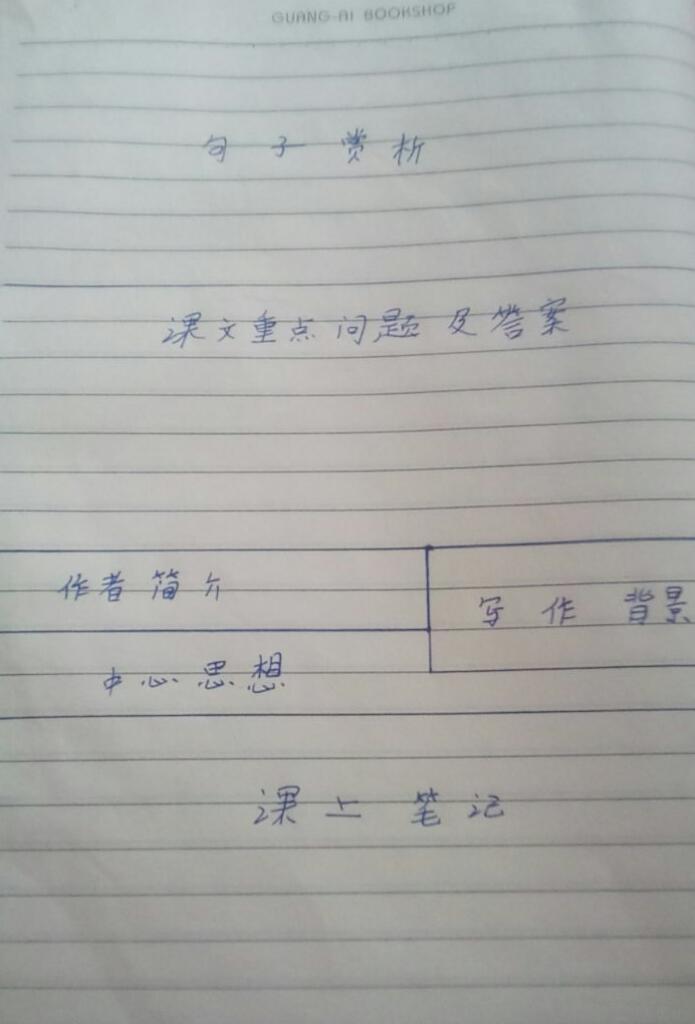 GUANG-AI BOOKSHOP
句子赏析
课文重点问题及答案
作者简介
写作背景
中心思想
课上笔记